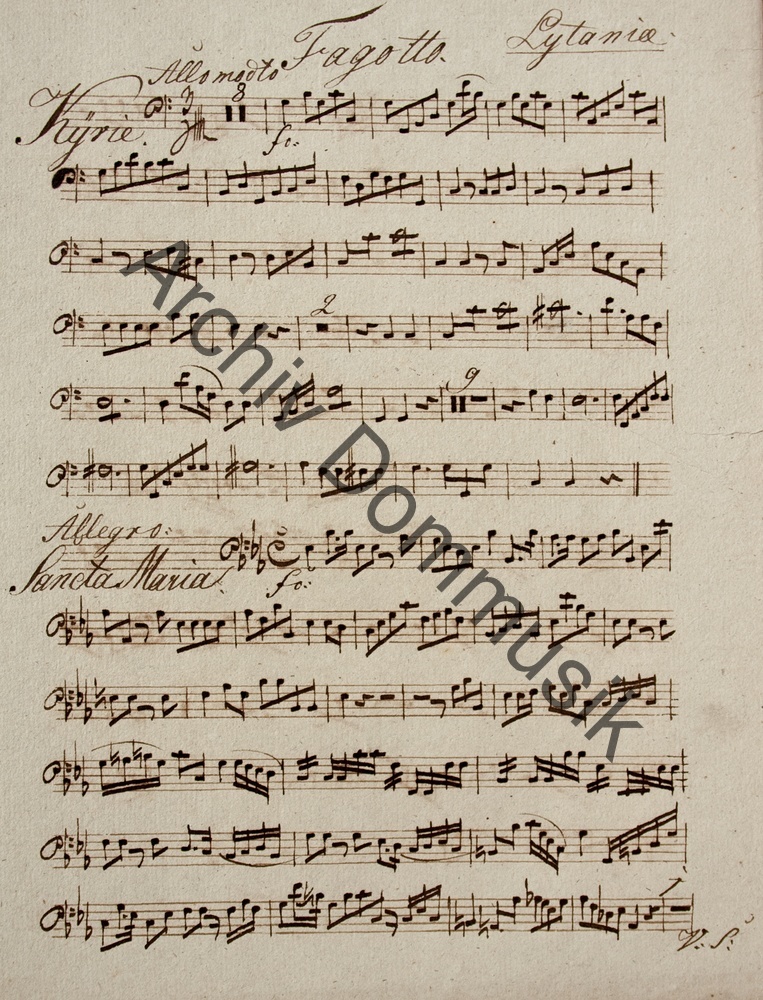 Fagotto. Lytaniæ.
Allo modto
Kÿrie. 8
fo:
2
9
Allegro:
Sancta Maria.
fo:
1
V: S:
Archiv Dommusik